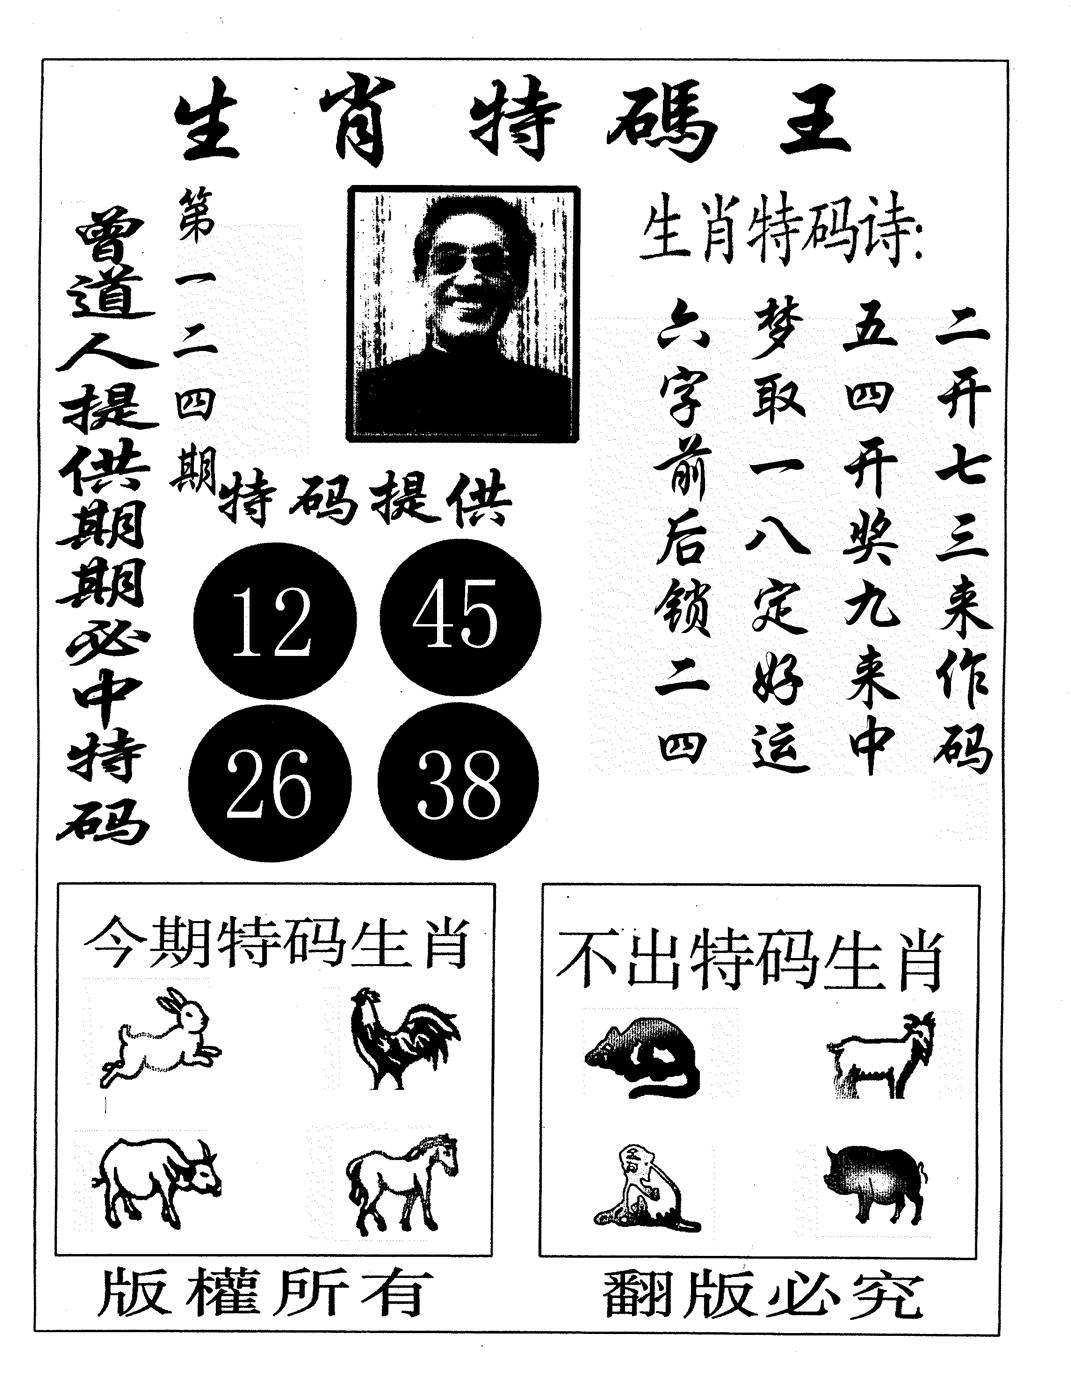 生肖特碼王
曾道人提供期期必中特码
第一二四期
生肖特码诗:
二开七三来作码
五四开奖九来中
梦取一八定好运
六字前后锁二四
特码提供
12
45
26
38
今期特码生肖
不出特码生肖
版權所有
翻版必究